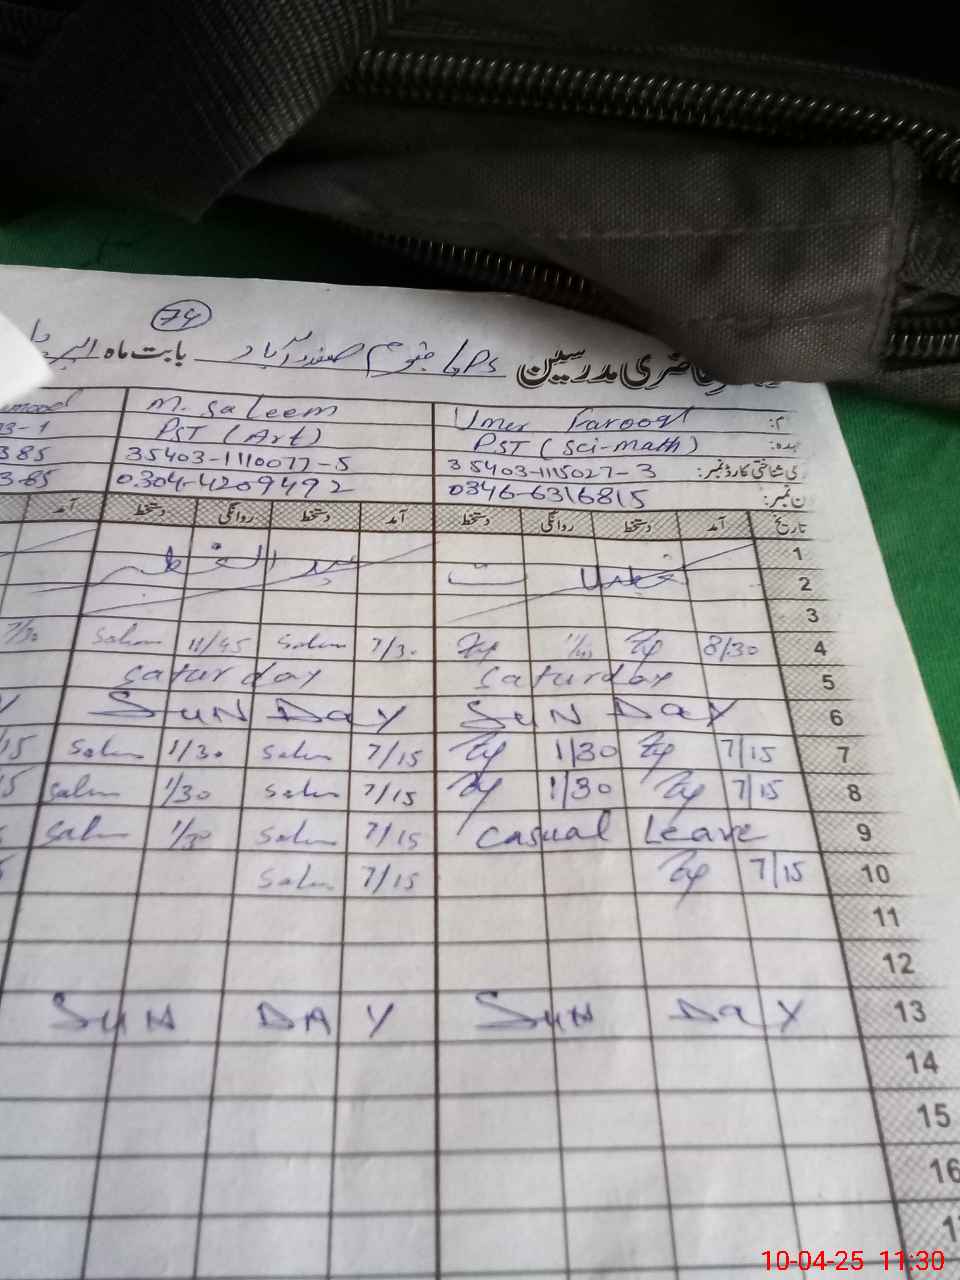 74
حاضری مدرسین GPS جنوم صفدرآباد بابت ماہ اپریل
M. Saleem Umer Farooq نام:
PST (Art) PST (Sci-math) عہدہ:
385 35403-1110077-5 35403-1115027-3 شناختی کارڈ نمبر:
0304-4209492 0346-6316815 فون نمبر:
آمد دستخط روانگی دستخط آمد دستخط روانگی دستخط آمد تاریخ
1
عید الفطر تعطیلات 2
3
7/30 Salem 11/45 Salem 7/30 8/30 4
Saturday Saturday 5
SUNDAY SUNDAY 6
15 Salem 1/30 Salem 7/15 1/30 7/15 7
15 Salem 1/30 Salem 7/15 1/30 7/15 8
Salem 1/30 Salem 7/15 Casual Leave 9
Salem 7/15 7/15 10
11
12
SUNDAY SUNDAY 13
14
15
16
10-04-25 11:30